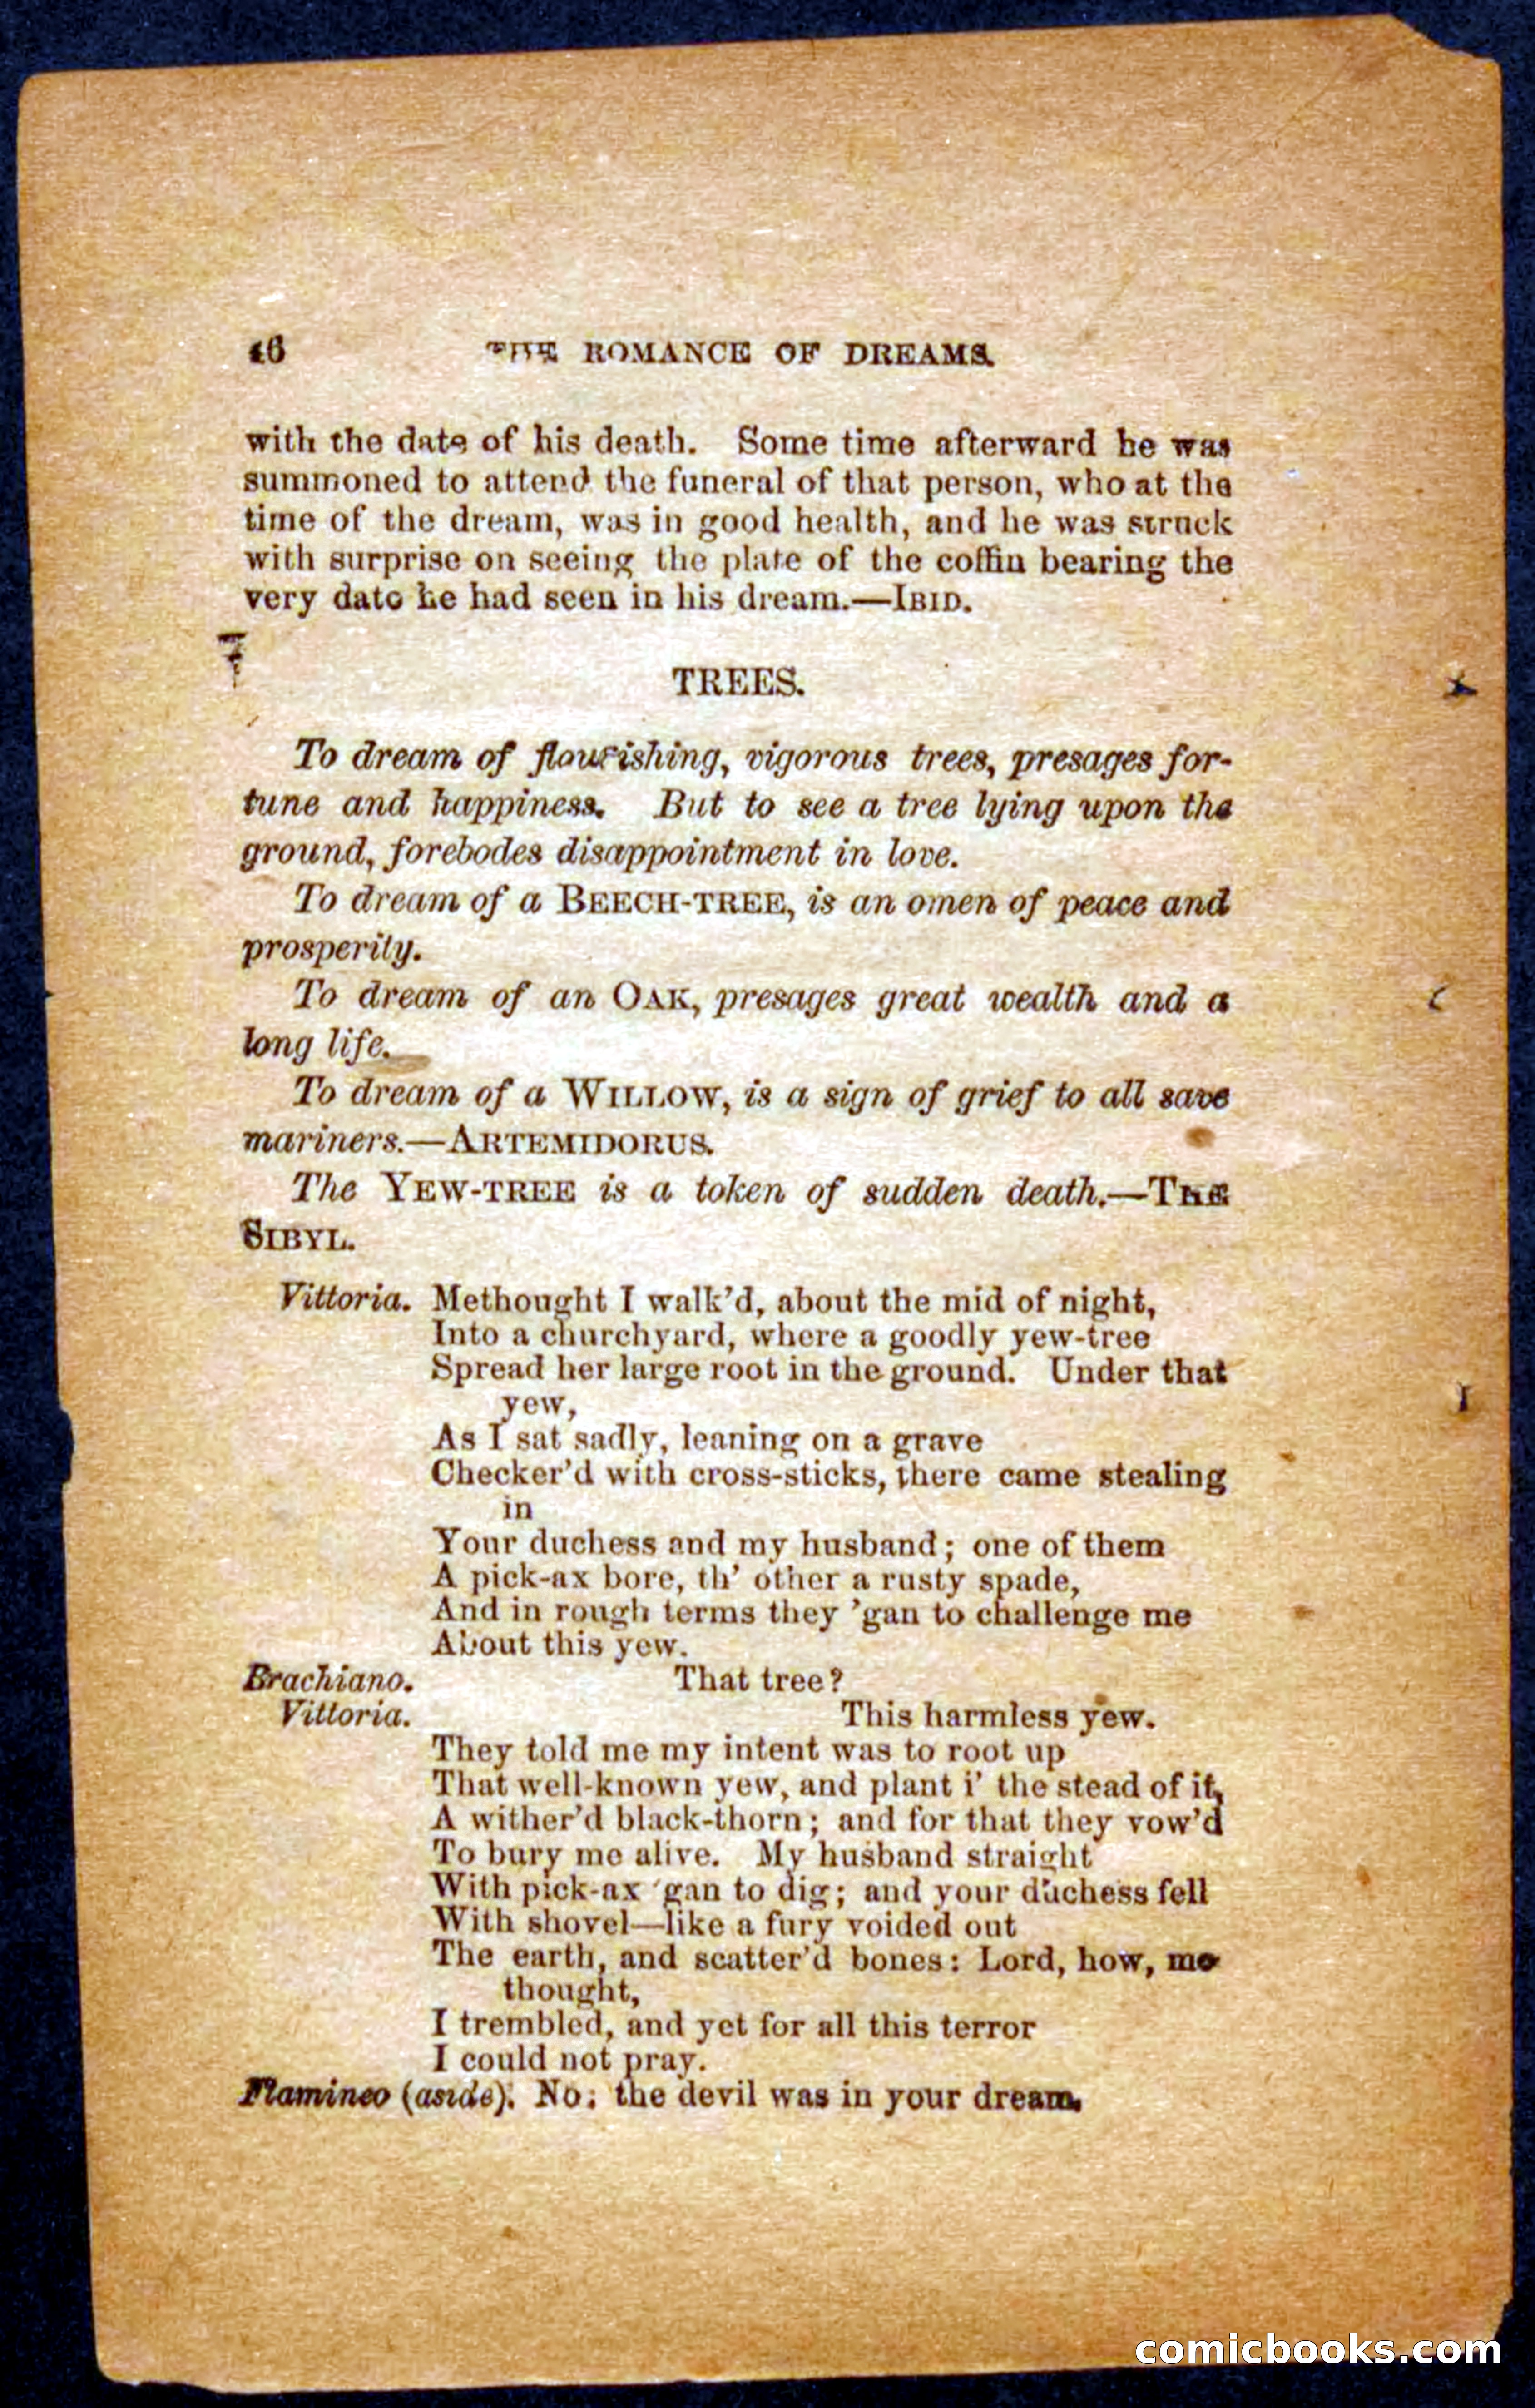 46 THE ROMANCE OF DREAMS.
with the date of his death. Some time afterward he was
summoned to attend the funeral of that person, who at the
time of the dream, was in good health, and he was struck
with surprise on seeing the plate of the coffin bearing the
very date he had seen in his dream.—IBID.
TREES.
To dream of flourishing, vigorous trees, presages for-
tune and happiness. But to see a tree lying upon the
ground, forebodes disappointment in love.
To dream of a BEECH-TREE, is an omen of peace and
prosperity.
To dream of an OAK, presages great wealth and a
long life.
To dream of a WILLOW, is a sign of grief to all save
mariners.—ARTEMIDORUS.
The YEW-TREE is a token of sudden death.—THE
SIBYL.
Vittoria. Methought I walk'd, about the mid of night,
Into a churchyard, where a goodly yew-tree
Spread her large root in the ground. Under that
yew,
As I sat sadly, leaning on a grave
Checker'd with cross-sticks, there came stealing
in
Your duchess and my husband; one of them
A pick-ax bore, th' other a rusty spade,
And in rough terms they 'gan to challenge me
About this yew.
Brachiano. That tree?
Vittoria. This harmless yew.
They told me my intent was to root up
That well-known yew, and plant i' the stead of it,
A wither'd black-thorn; and for that they vow'd
To bury me alive. My husband straight
With pick-ax 'gan to dig; and your duchess fell
With shovel—like a fury voided out
The earth, and scatter'd bones: Lord, how, me
thought,
I trembled, and yet for all this terror
I could not pray.
Flamineo (aside). No; the devil was in your dream.
comicbooks.com